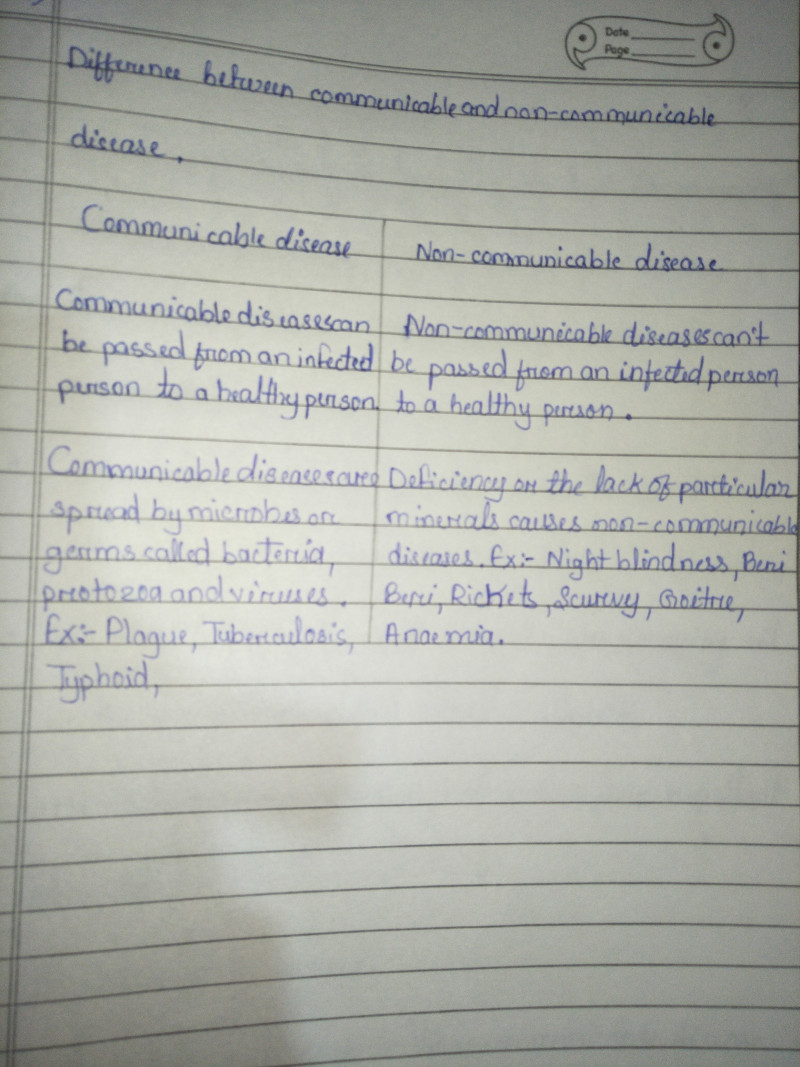 Date
Page
Difference between communicable and non-communicable
disease.
Communicable disease
Non-communicable disease
Communicable diseases can
be passed from an infected
person to a healthy person.
Non-communicable diseases can't
be passed from an infected person
to a healthy person.
Communicable diseases are
spread by microbes or
germs called bacteria,
protozoa and viruses.
Ex:- Plague, Tuberculosis,
Typhoid,
Deficiency or the lack of particular
minerals causes non-communicable
diseases. Ex:- Night blindness, Beri
Beri, Rickets, Scurvy, Goitre,
Anaemia.